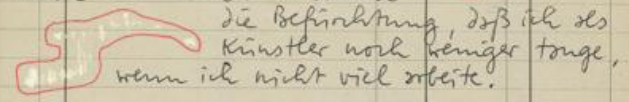 die Befürchtung, daß ich als
Künstler noch weniger tauge,
wenn ich nicht viel arbeite.